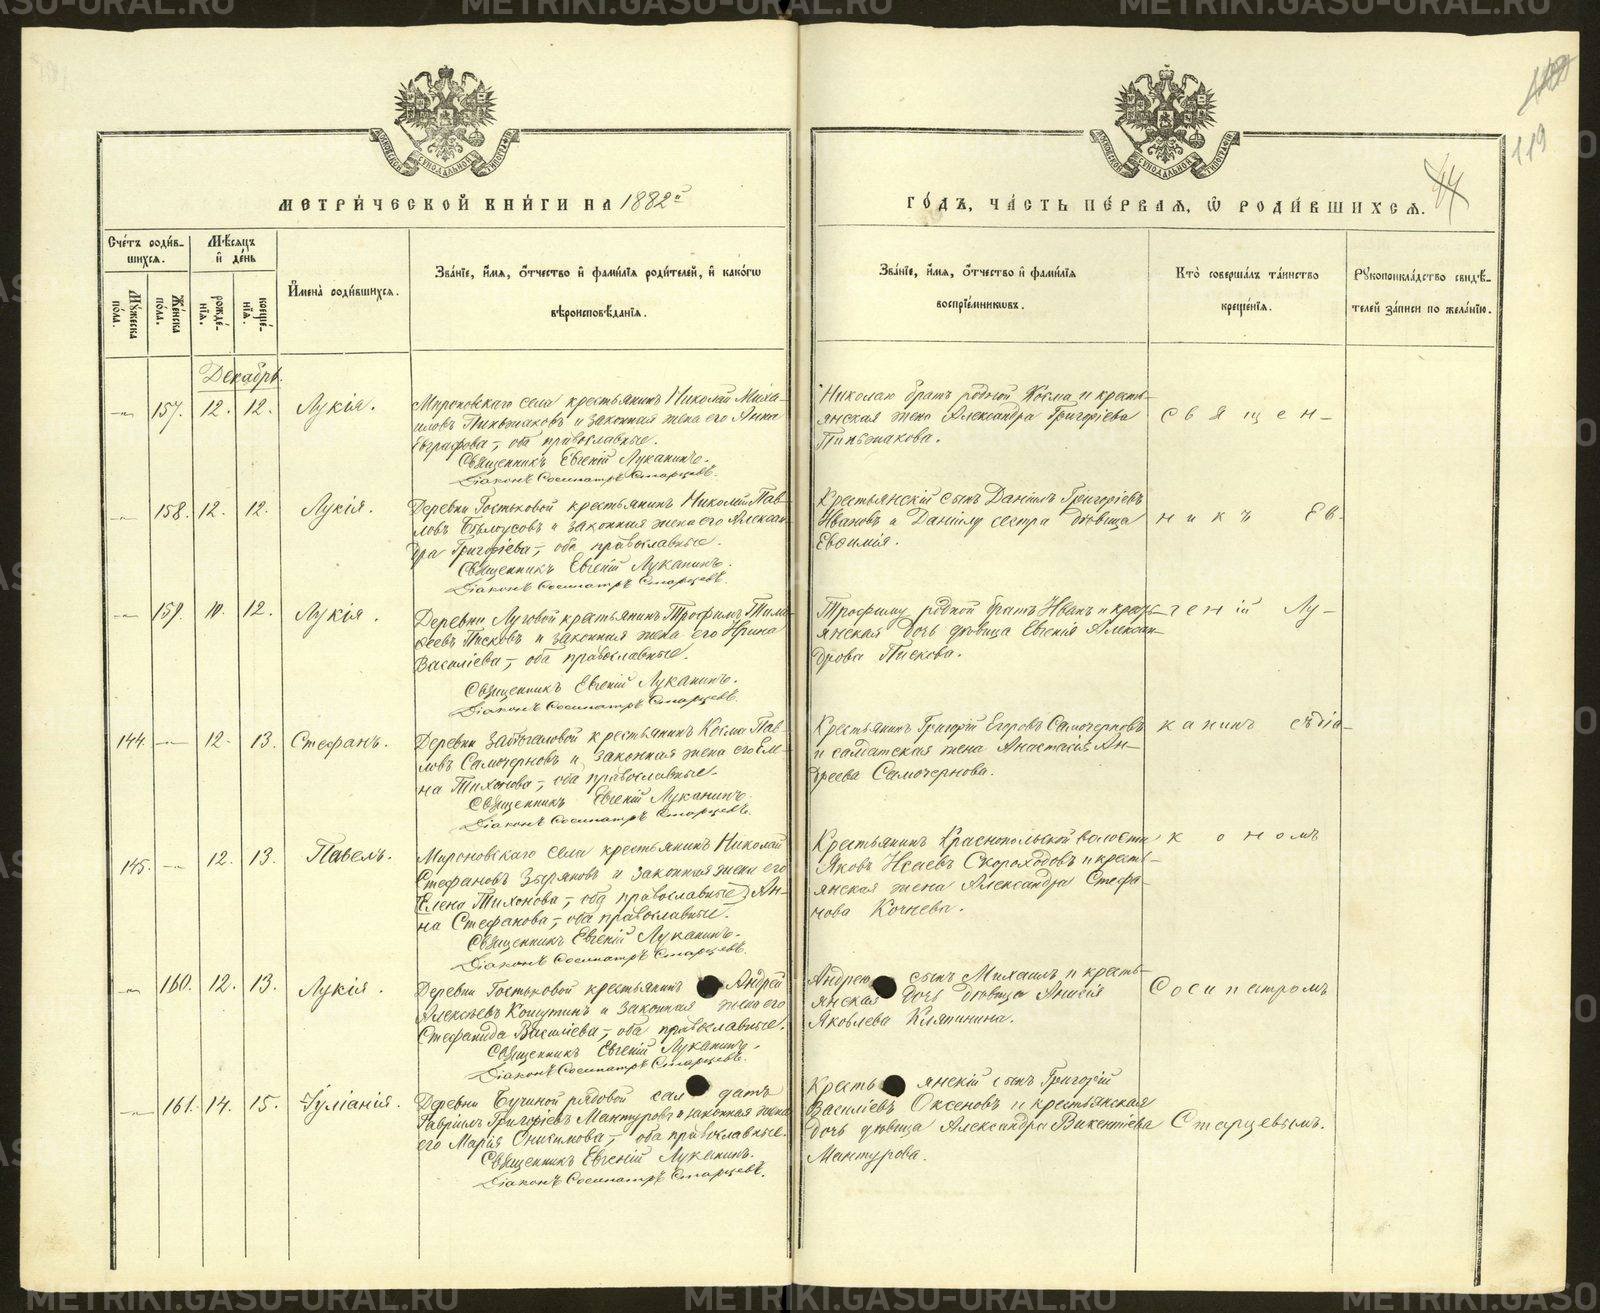 METRIKI.GASU-URAL.RU
119
МОСКОВСКОЙ СѴНОДАЛЬНОЙ ТИПОГРАФІИ
МЕТРИ́ЧЕСКОЙ КНИ́ГИ НА 1882й
ГО́ДЪ, ЧА́СТЬ ПЕ́РВАЯ, Ѽ РОДИ́ВШИХСЯ.
44
Сче́тъ роди́в-
шихся.
Мѣ́сяцъ
и҆ де́нь
Мꙋ́жеска по́ла.
Же́нска по́ла.
рожде́-
нїѧ.
креще́-
нїѧ.
И҆мена̀ роди́вшихся.
Зва́нїе, и҆́мѧ, ѻ҆́тчество и҆ фами́лїѧ роди́телей, и҆ како́гѡ
вѣроисповѣ́данїѧ.
Зва́нїе, и҆́мѧ, ѻ҆́тчество и҆ фами́лїѧ
воспрїе́мникѡвъ.
Кто̀ соверша́лъ та́инство
креще́нїѧ.
Рꙋкоприкла́дство свидѣ́-
телей за́писи по жела́нїю.
Декабрь.
157. 12. 12. Лукія.
Мироновскаго села крестьянинъ Николай Миха-
иловъ Пиньжаковъ и законная жена его Анна
Евграфова, оба православные.
Священникъ Евгеній Луканинъ.
Діаконъ Сосипатръ Старцевъ.
Николаю братъ родной Косма и кресть-
янская жена Александра Григоріева
Пиньжакова.
священ-
158. 12. 12. Лукія.
Деревни Гостьковой крестьянинъ Николай Пав-
ловъ Бѣлоусовъ и законная жена его Алексан-
дра Григоріева, оба православные.
Священникъ Евгеній Луканинъ.
Діаконъ Сосипатръ Старцевъ.
Крестьянскій сынъ Даніилъ Григоріевъ
Ивановъ и Даніилу сестра дѣвица
Евѳимія.
никъ Ев-
159. 10. 12. Лукія.
Деревни Луговой крестьянинъ Трофимъ Тимо-
ѳеевъ Писковъ и законная жена его Ирина
Василіева, оба православные.
Священникъ Евгеній Луканинъ.
Діаконъ Сосипатръ Старцевъ.
Трофиму родной братъ Иванъ и кресть-
янская дочь дѣвица Евгенія Алексан-
дрова Пискова.
геній Лу-
144. 12. 13. Стефанъ.
Деревни крестьянинъ Косма Пав-
ловъ Самочерновъ и законная жена его Еле-
на Тихонова, оба православные.
Священникъ Евгеній Луканинъ.
Діаконъ Сосипатръ Старцевъ.
Крестьянинъ Григорій Егоровъ Самочерновъ
и солдатская жена Анастасія Ан-
дреева Самочернова.
канинъ съ діа-
145. 12. 13. Павелъ.
Мироновскаго села крестьянинъ Николай
Стефановъ Зыряновъ и законная жена его
(Елена Тихонова, оба православные) Ан-
на Стефанова, оба православные.
Священникъ Евгеній Луканинъ.
Діаконъ Сосипатръ Старцевъ.
Крестьянинъ Краснопольской волости
Яковъ Исаевъ Скороходовъ и кресть-
янская жена Александра Стефа-
нова Кочнева.
кономъ
160. 12. 13. Лукія.
Деревни Гостьковой крестьянинъ Андрей
Алексѣевъ и законная жена его
Стефанида Василіева, оба православные.
Священникъ Евгеній Луканинъ.
Діаконъ Сосипатръ Старцевъ.
Андрею сынъ Михаилъ и кресть-
янская дочь дѣвица Анисія
Яковлева Кляпинина.
Сосипатромъ
161. 14. 15. Іуліанія.
Деревни Бучиной рядовой солдатъ
Гавріилъ Григорьевъ Мантуровъ и законная жена
его Марія Оникимова, оба православные.
Священникъ Евгеній Луканинъ.
Діаконъ Сосипатръ Старцевъ.
Крестьянскій сынъ Григорій
Василіевъ Оксеновъ и крестьянская
дочь дѣвица Александра Викентіева
Мантурова.
Старцевымъ.